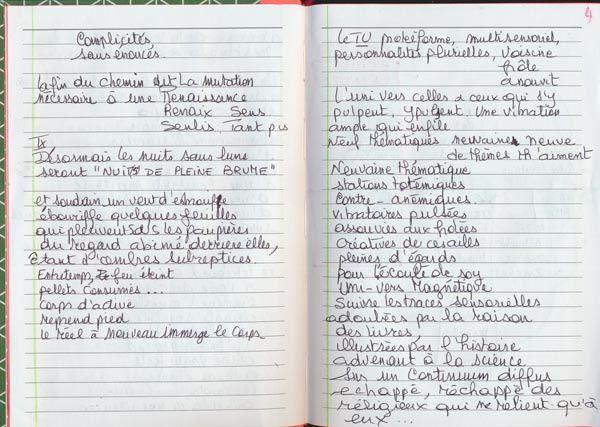 Complicités,
sous énoncés.
La fin du chemin dit la mutation
nécessaire à une Renaissance
Renaix Sens.
Senlis, Tant pis
IX
Désormais les nuits sans lune
seront "NUITS DE PLEINE BRUME"
et soudain un vent d'
ébouriffe quelques feuilles
qui pleuvent sds les paupières
du regard abîmé derrière elles,
étant d'ombres subreptices.
Entretemps, feu éteint
pellets consumés ...
corps d'
reprend pied
le réel à nouveau immerge le corps-
4
Le TU protéiforme, multisensoriel,
personnalités plurielles, voisine
frôle
L'uni vers celles & ceux qui s'y
pulpent, Ypulpent. Une vibration
ample qui enfile
Neuf thématiques neuvaines neuve
de thèmes th'aiment
Neuvaine thématique
stations totémiques
contre-anémiques.
vibratoires pulsées
assouvies aux
créatives de
pleines d'égards
pour l'écoute de soy
Uni-vers Magnétique
Suivre les traces sensorielles
adoubées par la raison
des livres,
illustrées par l'histoire
advenant à la science
Sur un continuum diffus
echappé, réchappé des
réligieux qui ne relient qu'à
eux ...